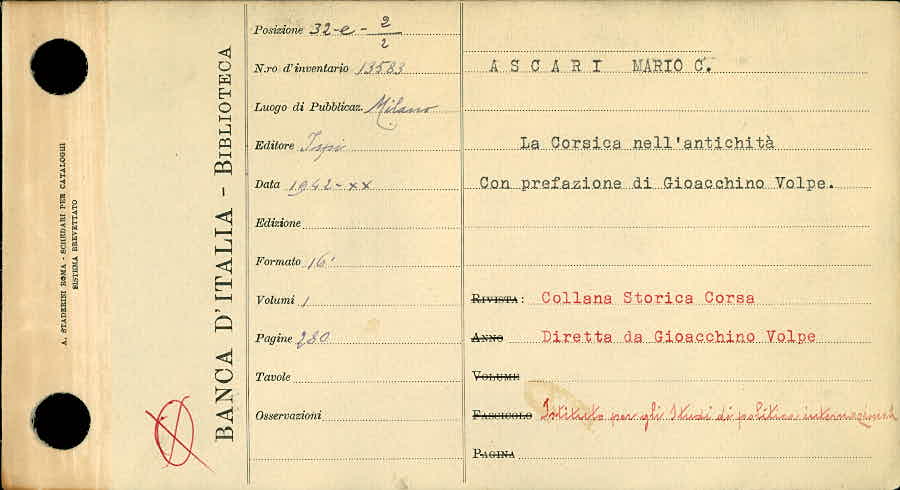 A. STADERINI ROMA - SCHEDARI PER CATALOGHI
SISTEMA BREVETTATO
BANCA D'ITALIA - BIBLIOTECA
Posizione 32-e-2/2
N.ro d'inventario 13583
Luogo di Pubblicaz. Milano
Editore Ispi
Data 1942-XX
Edizione
Formato 16°
Volumi 1
Pagine 280
Tavole
Osservazioni
ASCARI MARIO C.
La Corsica nell'antichità
Con prefazione di Gioacchino Volpe.
RIVISTA: Collana Storica Corsa
ANNO Diretta da Gioacchino Volpe
VOLUME
FASCICOLO Istituto per gli Studi di politica internazionale
PAGINA